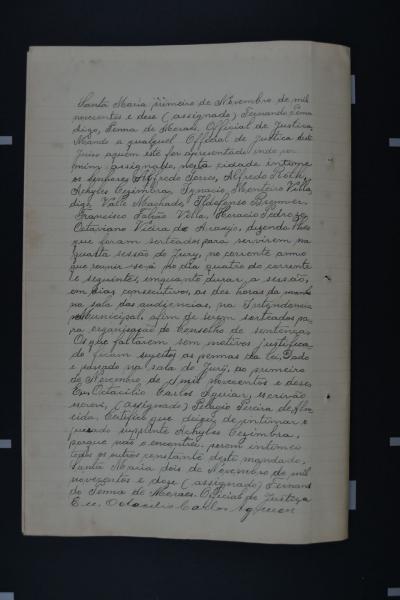 Santa Maria primeiro de Novembro de mil
novecentos e dose (assignado) Fernando Penna
digo, Penna de Moraes. Official de Justiça,
Mando a qualquel Official de Justiça deste
Juiso aquem este for apresentado indo por
mim assignado, nesta cidade intime
os senhores Alfredo Torres, Alfredo Roth,
Achyles Cezimbra, Ignacio Monteiro Villa,
digo, Valle Machado, Ildefonso Brenner,
Francisco Falcão Villa, Horacio Pedrozo,
Octaviano Vieira de Araujo, disendo lhes
que foram sorteados para servirem na
quarta sessão do Jury, no corrente anno
que reunir-se-á no dia quatro do corrente
e seguintes, enquanto durar a sessão,
em dias consecutivos, as dez horas da manhã
na sala das audiencias, na Intendencia
Municipal, afim de serem sorteados pa-
ra organisação do Conselho de sentença.
Os que faltarem sem motivos justifica-
do ficam sujeitos as pennas da lei. Dado
e passado na sala do Jury, ao primeiro
de Novembro de mil novecentos e dose.
Eu Octacilio Carlos Aguiar, escrivão
escrevi, (assignado) Pelagio Pereira de Alm
eida. Certifico que deixei de intimar o
jurado supplente Achyles Cezimbra,
porque não o encontrei. porem intimei
todos os outros constante deste mandado,
Santa Maria dois de Novembro de mil
novecentos e doze (assignado) Fernan
do Penna de Moraes. Official de Justiça
Eu Octacilio Carlos Aguiar